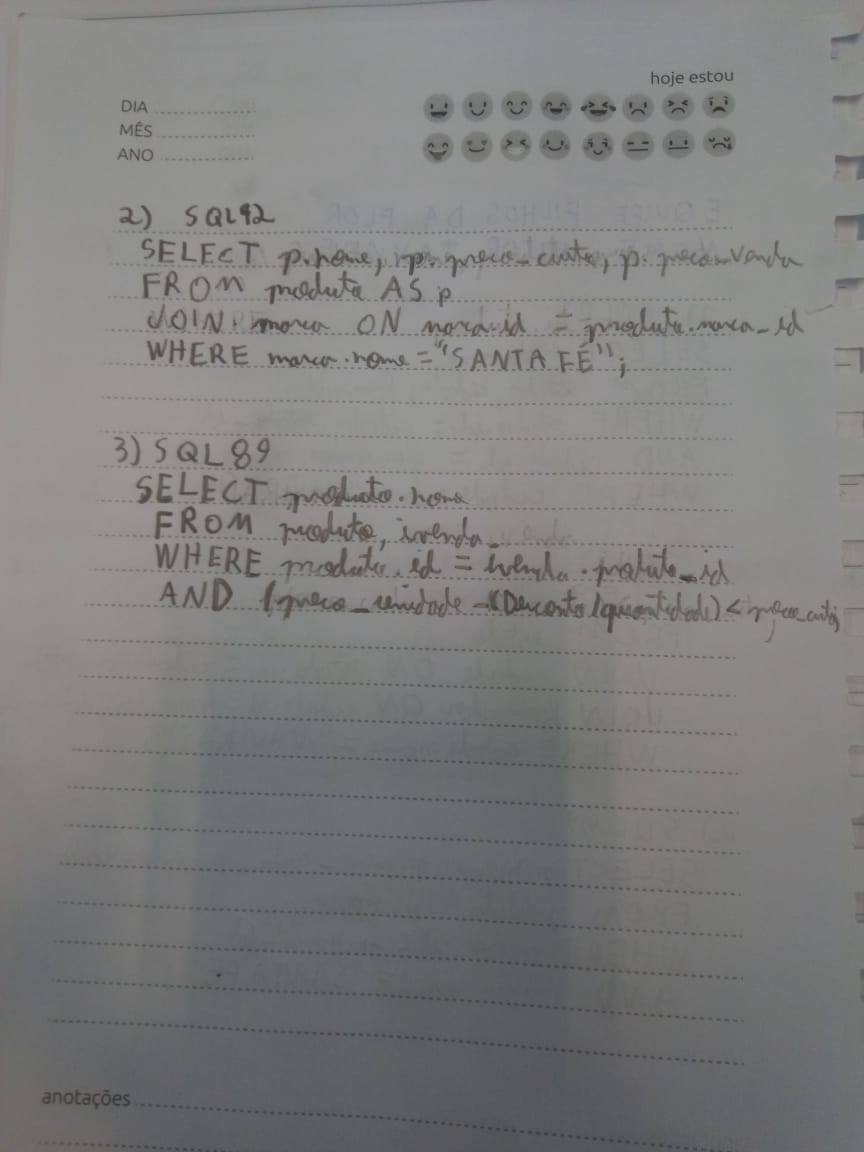 hoje estou
DIA
MÊS
ANO
2) SQL92
SELECT p.nome, p.preco_custo, p.preco_venda
FROM produto AS p
JOIN marca ON marca.id = produto.marca_id
WHERE marca.nome = "SANTA FÉ";
3) SQL89
SELECT produto.nome
FROM produto, ivenda
WHERE produto.id = ivenda.produto_id
AND (preco_unidade - (Desconto/quantidade) < preco_custo;
anotações